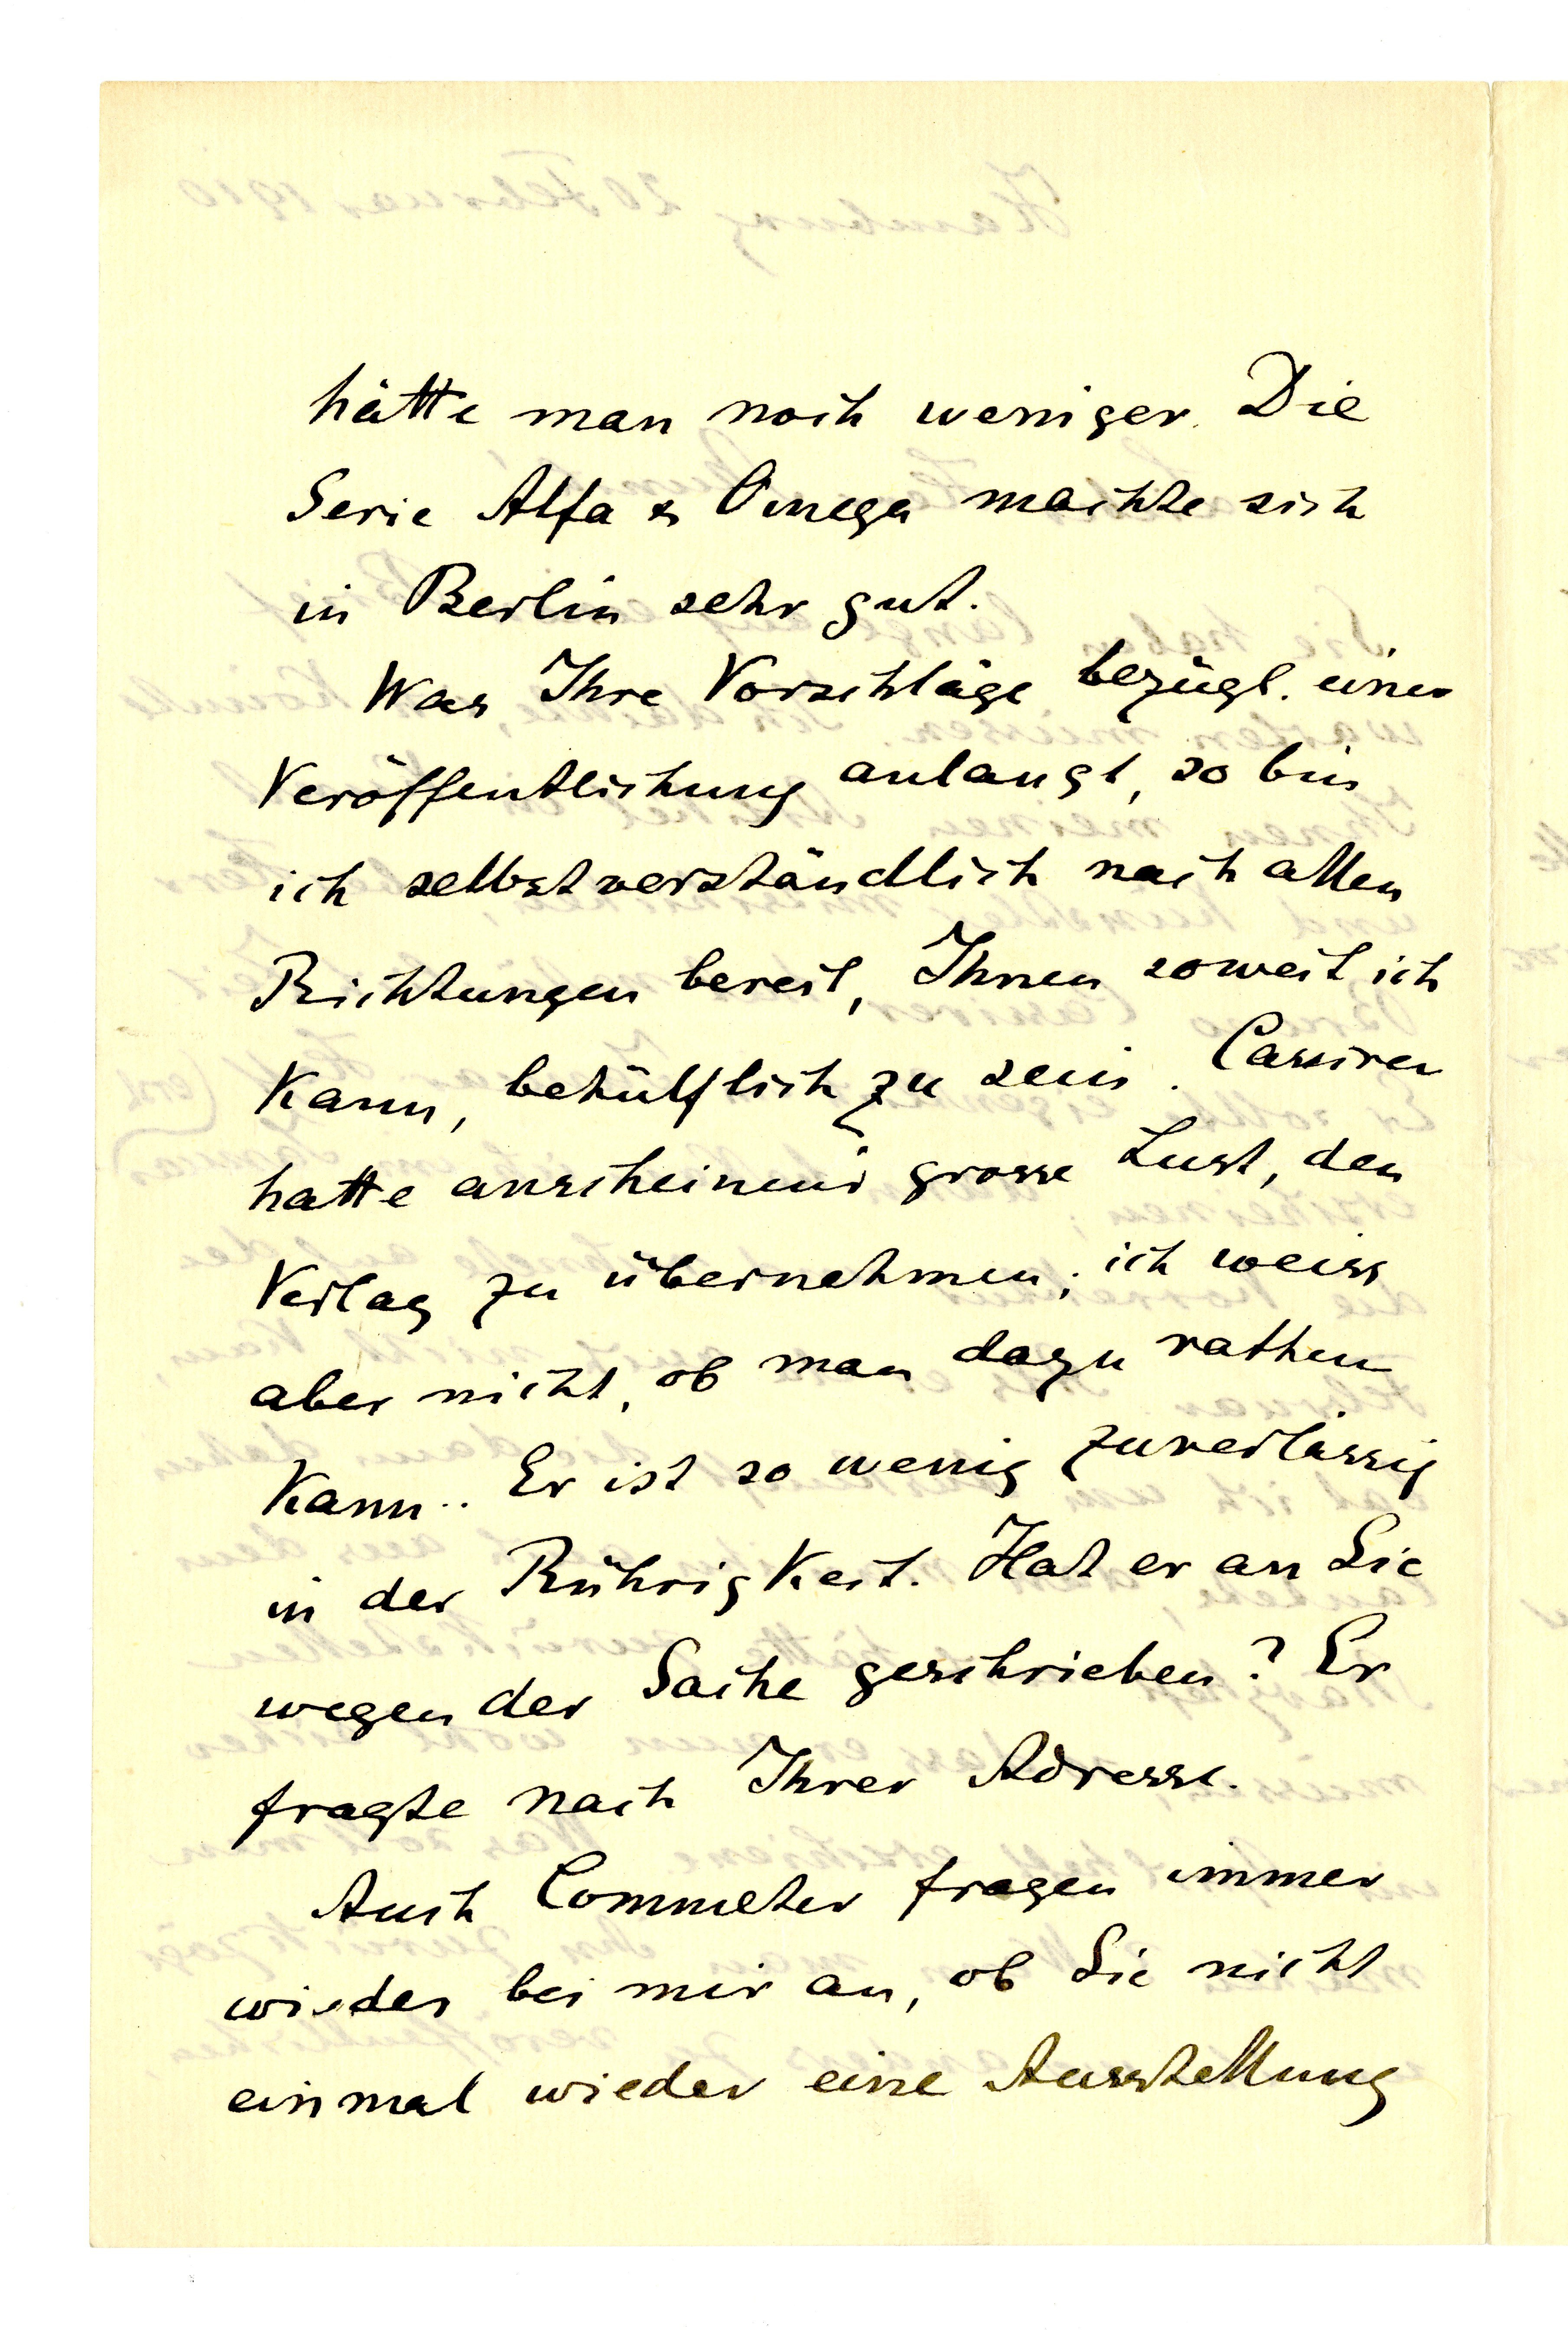 hätte man noch weniger. Die
Serie Alfa & Omega machte sich
in Berlin sehr gut.
Was Ihre Vorschläge bezügl. einer
Veröffentlichung anlangt, so bin
ich selbstverständlich nach allen
Richtungen bereit, Ihnen soweit ich
kann, behülflich zu sein. Cassirer
hatte anscheinend grosse Lust, den
Verlag zu übernehmen; ich weiss
aber nicht, ob man dazu rathen
kann.. Er ist so wenig zuverlässig
in der Rührigkeit. Hat er an Sie
wegen der Sache geschrieben? Er
fragte nach Ihrer Adresse.
Auch Commeter fragen immer
wieder bei mir an, ob Sie nicht
einmal wieder eine Ausstellung